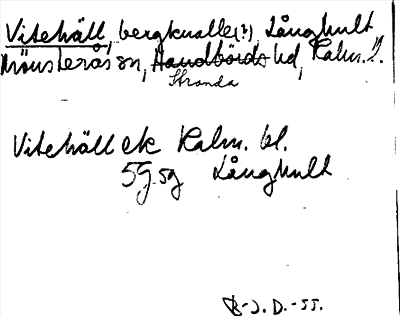 Vitehäll, bergknalle(?), Långhult
Mönsterås sn, Handbörds hd, Kalm. l.
Stranda
Vitehäll ek Kalm. bl.
5g 5g Långhult
B-J. D.-55.